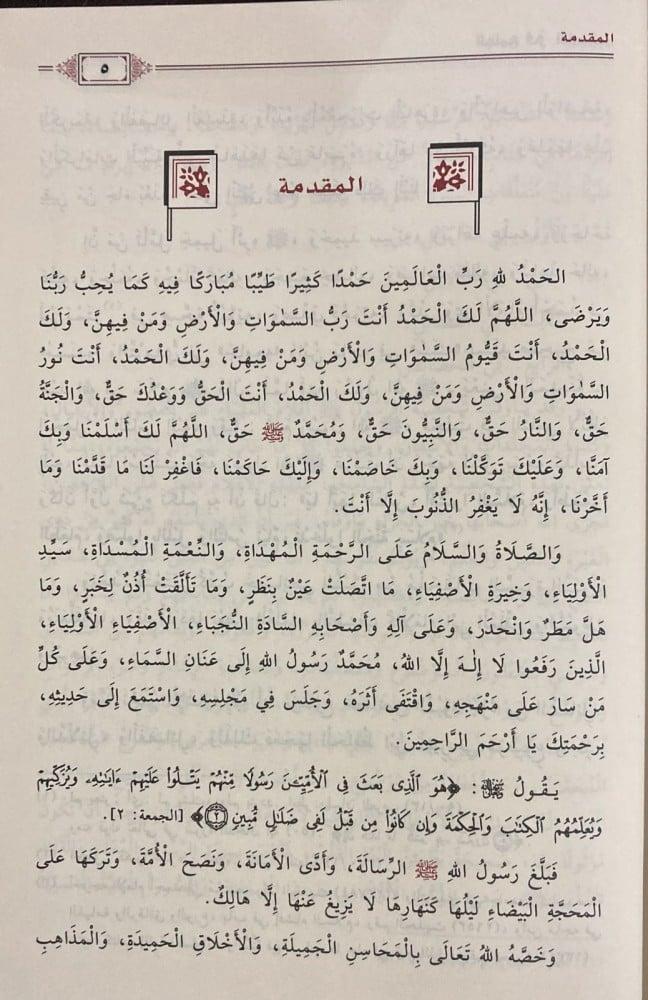 المقدمة
٥
المقدمة
الحَمْدُ للهِ رَبِّ الْعَالَمِينَ حَمْدًا كَثِيرًا طَيِّبًا مُبَارَكًا فِيهِ كَمَا يُحِبُّ رَبُّنَا
وَيَرْضَى، اللَّهُمَّ لَكَ الْحَمْدُ أَنْتَ رَبُّ السَّمٰوَاتِ وَالْأَرْضِ وَمَنْ فِيهِنَّ، وَلَكَ
الْحَمْدُ، أَنْتَ قَيُّومُ السَّمٰوَاتِ وَالْأَرْضِ وَمَنْ فِيهِنَّ، وَلَكَ الْحَمْدُ، أَنْتَ نُورُ
السَّمٰوَاتِ وَالْأَرْضِ وَمَنْ فِيهِنَّ، وَلَكَ الْحَمْدُ، أَنْتَ الْحَقُّ وَوَعْدُكَ حَقٌّ، وَالْجَنَّةُ
حَقٌّ، وَالنَّارُ حَقٌّ، وَالنَّبِيُّونَ حَقٌّ، وَمُحَمَّدٌ ﷺ حَقٌّ، اللَّهُمَّ لَكَ أَسْلَمْنَا وَبِكَ
آمَنَّا، وَعَلَيْكَ تَوَكَّلْنَا، وَبِكَ خَاصَمْنَا، وَإِلَيْكَ حَاكَمْنَا، فَاغْفِرْ لَنَا مَا قَدَّمْنَا وَمَا
أَخَّرْنَا، إِنَّهُ لَا يَغْفِرُ الذُّنُوبَ إِلَّا أَنْتَ.
وَالصَّلَاةُ وَالسَّلَامُ عَلَى الرَّحْمَةِ الْمُهْدَاةِ، وَالنِّعْمَةِ الْمُسْدَاةِ، سَيِّدِ
الْأَوْلِيَاءِ، وَخِيرَةِ الْأَصْفِيَاءِ، مَا اتَّصَلَتْ عَيْنٌ بِنَظَرٍ، وَمَا تَأَلَّقَتْ أُذُنٌ لِخَبَرٍ، وَمَا
هَلَّ مَطَرٌ وَانْحَدَرَ، وَعَلَى آلِهِ وَأَصْحَابِهِ السَّادَةِ النُّجَبَاءِ، الْأَصْفِيَاءِ الْأَوْلِيَاءِ،
الَّذِينَ رَفَعُوا لَا إِلٰهَ إِلَّا اللهُ، مُحَمَّدٌ رَسُولُ اللهِ إِلَى عَنَانِ السَّمَاءِ، وَعَلَى كُلِّ
مَنْ سَارَ عَلَى مَنْهَجِهِ، وَاقْتَفَى أَثَرَهُ، وَجَلَسَ فِي مَجْلِسِهِ، وَاسْتَمَعَ إِلَى حَدِيثِهِ،
بِرَحْمَتِكَ يَا أَرْحَمَ الرَّاحِمِينَ.
يَقُولُ ﷻ: ﴿هُوَ ٱلَّذِى بَعَثَ فِى ٱلْأُمِّيِّـۧنَ رَسُولًا مِّنْهُمْ يَتْلُوا۟ عَلَيْهِمْ ءَايَـٰتِهِۦ وَيُزَكِّيهِمْ
وَيُعَلِّمُهُمُ ٱلْكِتَـٰبَ وَٱلْحِكْمَةَ وَإِن كَانُوا۟ مِن قَبْلُ لَفِى ضَلَـٰلٍ مُّبِينٍ ٢﴾ [الجمعة: ٢].
فَبَلَّغَ رَسُولُ اللهِ ﷺ الرِّسَالَةَ، وَأَدَّى الْأَمَانَةَ، وَنَصَحَ الْأُمَّةَ، وَتَرَكَهَا عَلَى
الْمَحَجَّةِ الْبَيْضَاءِ لَيْلُهَا كَنَهَارِهَا لَا يَزِيغُ عَنْهَا إِلَّا هَالِكٌ.
وَخَصَّهُ اللهُ تَعَالَى بِالْمَحَاسِنِ الْجَمِيلَةِ، وَالْأَخْلَاقِ الْحَمِيدَةِ، وَالْمَذَاهِبِ